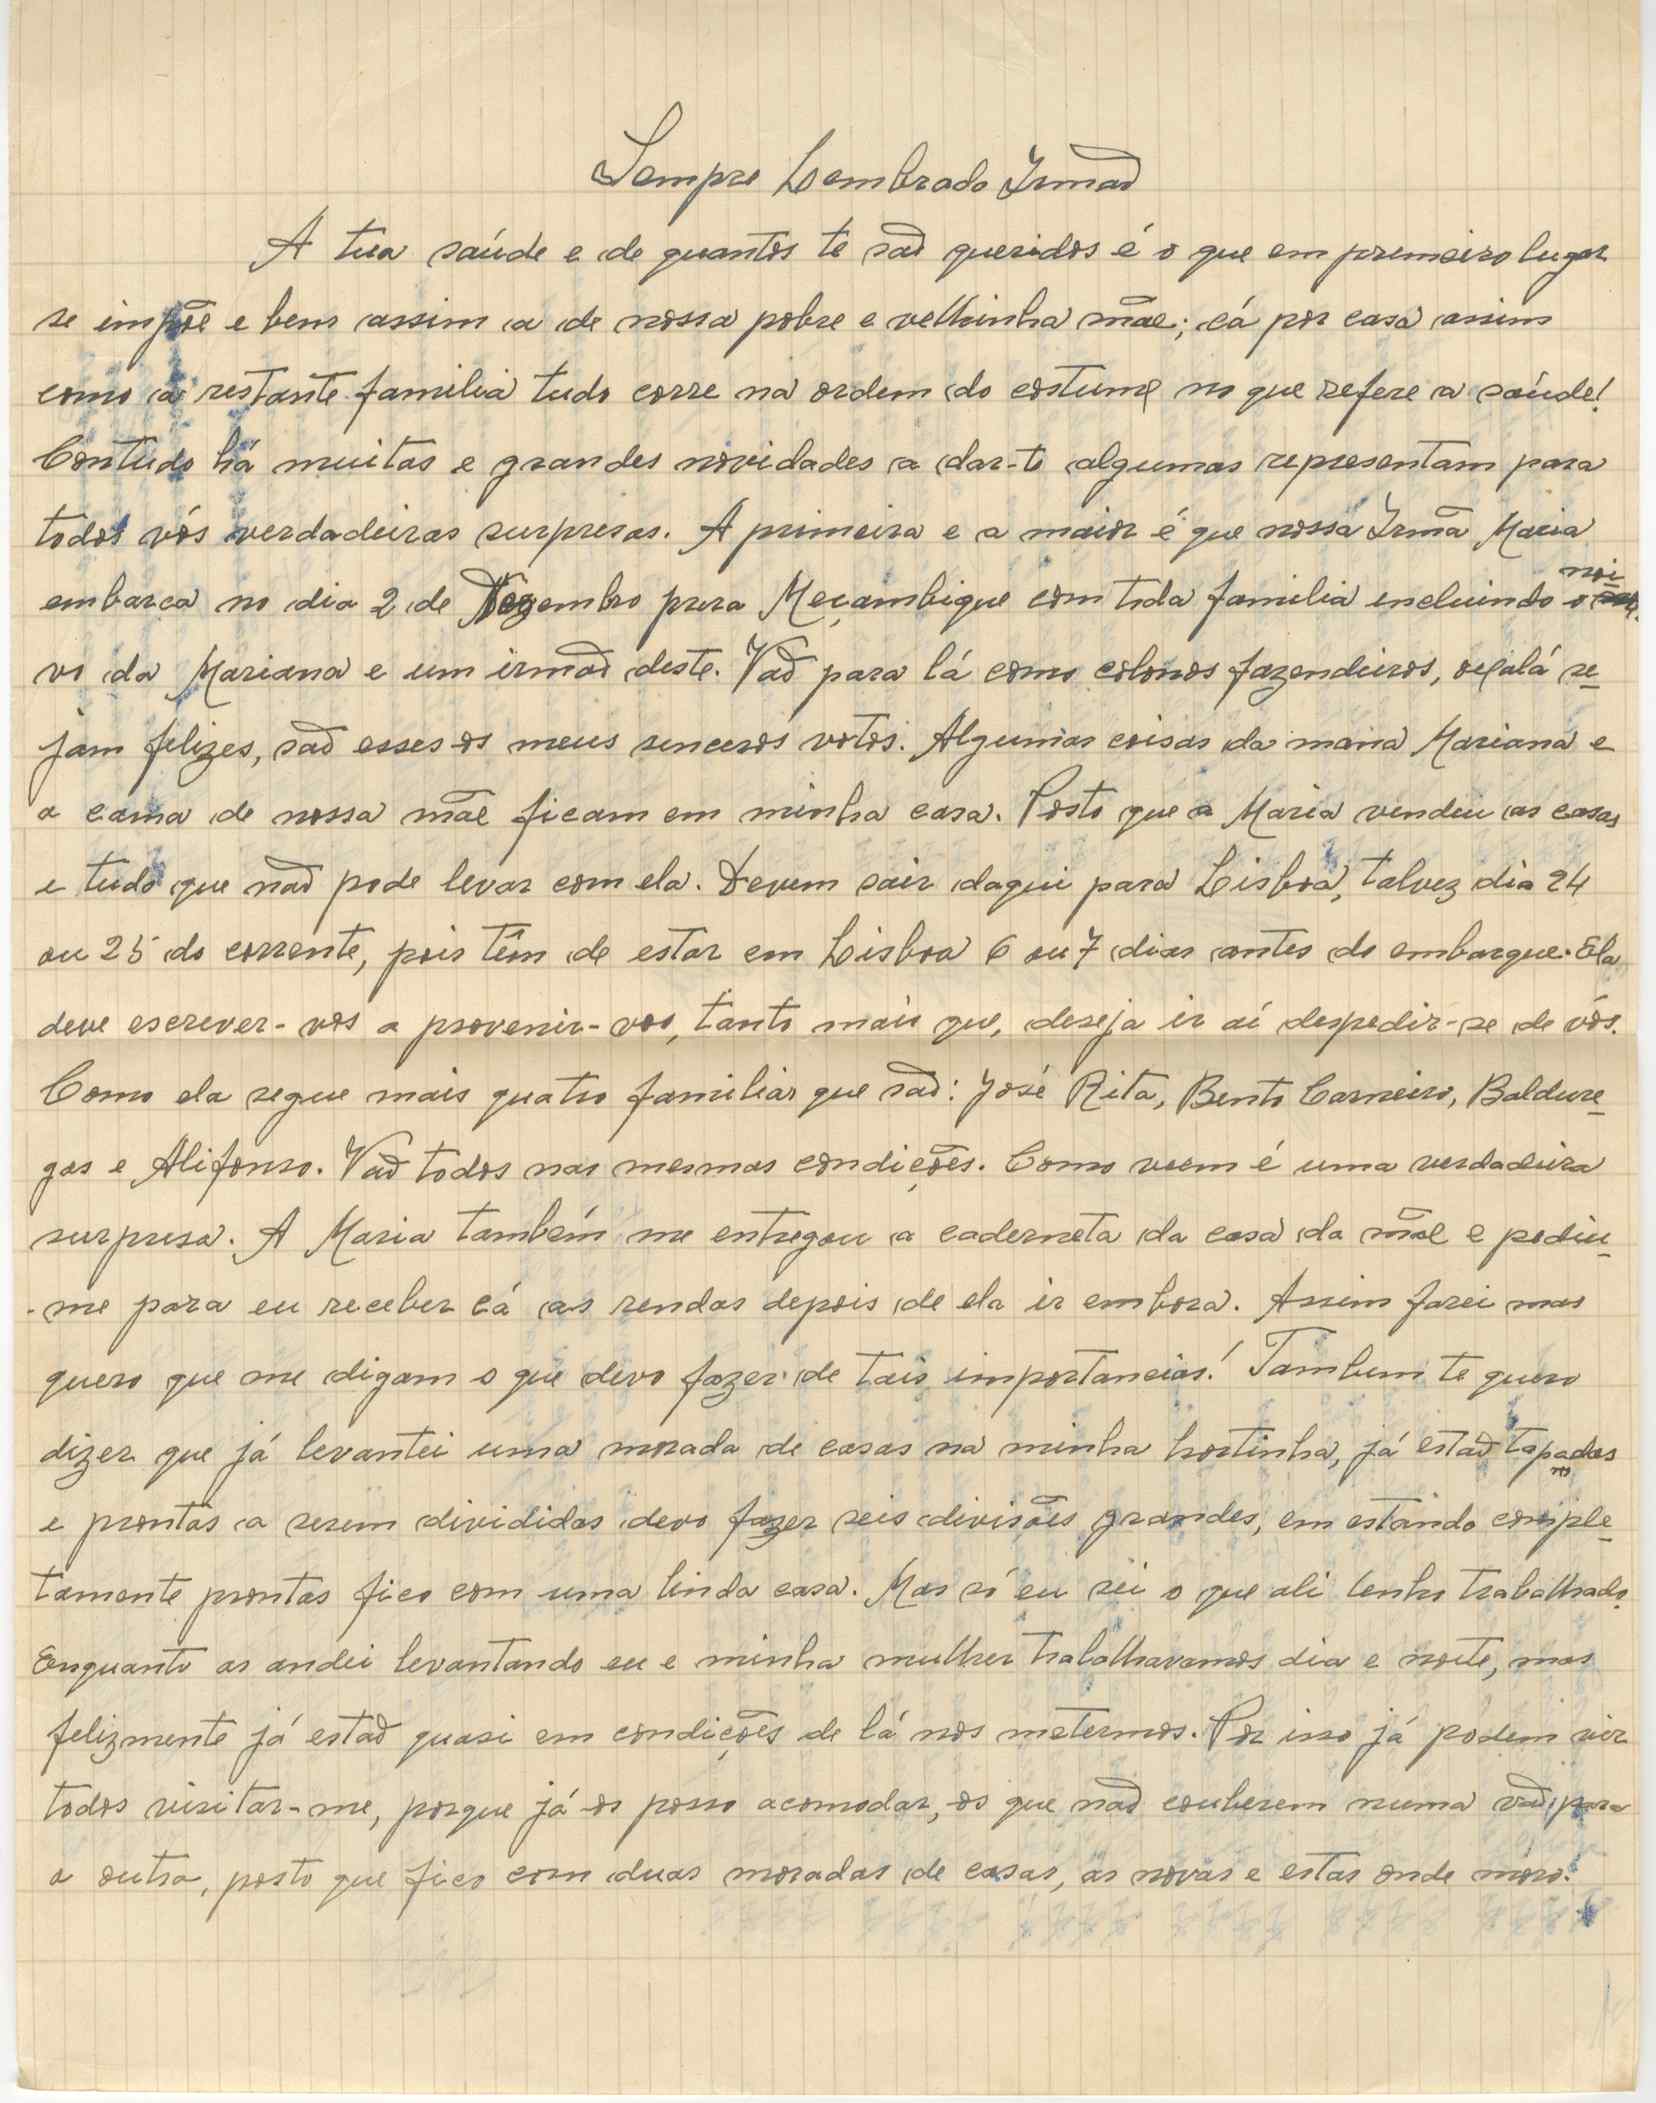 Sempre Lembrado Irmão
A tua saúde e de quantos te são queridos é o que em premeiro lugar
se impõe e bem assim a de nossa pobre e velhinha mãe; cá por casa assim
como a restante familia tudo corre na ordem do costume no que refere a saúde!
Contudo há muitas e grandes novidades a dar-te algumas representam para
todos vós verdadeiras surpresas. A primeira e a maior é que nossa Irmã Maria
embarca no dia 2 de Dezembro para Moçambique com toda familia encluindo o noi-
vo da Mariana e um irmão deste. Vão para lá como colonos fazendeiros, oxalá se-
jam felizes, são esses os meus senceros votos. Algumas coisas da mana Mariana e
a cama de nossa mãe ficam em minha casa. Posto que a Maria vendeu as casas
e tudo que não pode levar com ela. Devem sair daqui para Lisboa, talvez dia 24
ou 25 do corrente, pois têm de estar em Lisboa 6 ou 7 dias antes do embarque. Ela
deve escrever-vos a prevenir-vos, tanto mais que, deseja ir aí despedir-se de vós.
Como ela segue mais quatro familias que são: José Rita, Bento Carneiro, Baldure-
gas e Alifonso. Vão todos nas mesmas condições. Como veem é uma verdadeira
surpresa. A Maria também me entregou a caderneta da casa da mãe e pediu-
-me para eu receber cá as rendas depois de ela ir embora. Assim farei mas
quero que me digam o que devo fazer de tais importancias! Tambem te quero
dizer que já levantei uma morada de casas na minha hortinha, já estão tapadas
e prontas a serem divididas devo fazer seis divisões grandes, em estando comple-
tamente prontas fico com uma linda casa. Mas só eu sei o que ali tenho trabalhado.
Enquanto as andei levantando eu e minha mulher trabalhavamos dia e noite, mas
felizmente já estão quasi em condições de lá nos metermos. Por isso já podem vir
todos visitar-me, porque já os posso acomodar, os que não couberem numa vão para
a outra, posto que fico com duas moradas de casas, as novas e estas onde móro.